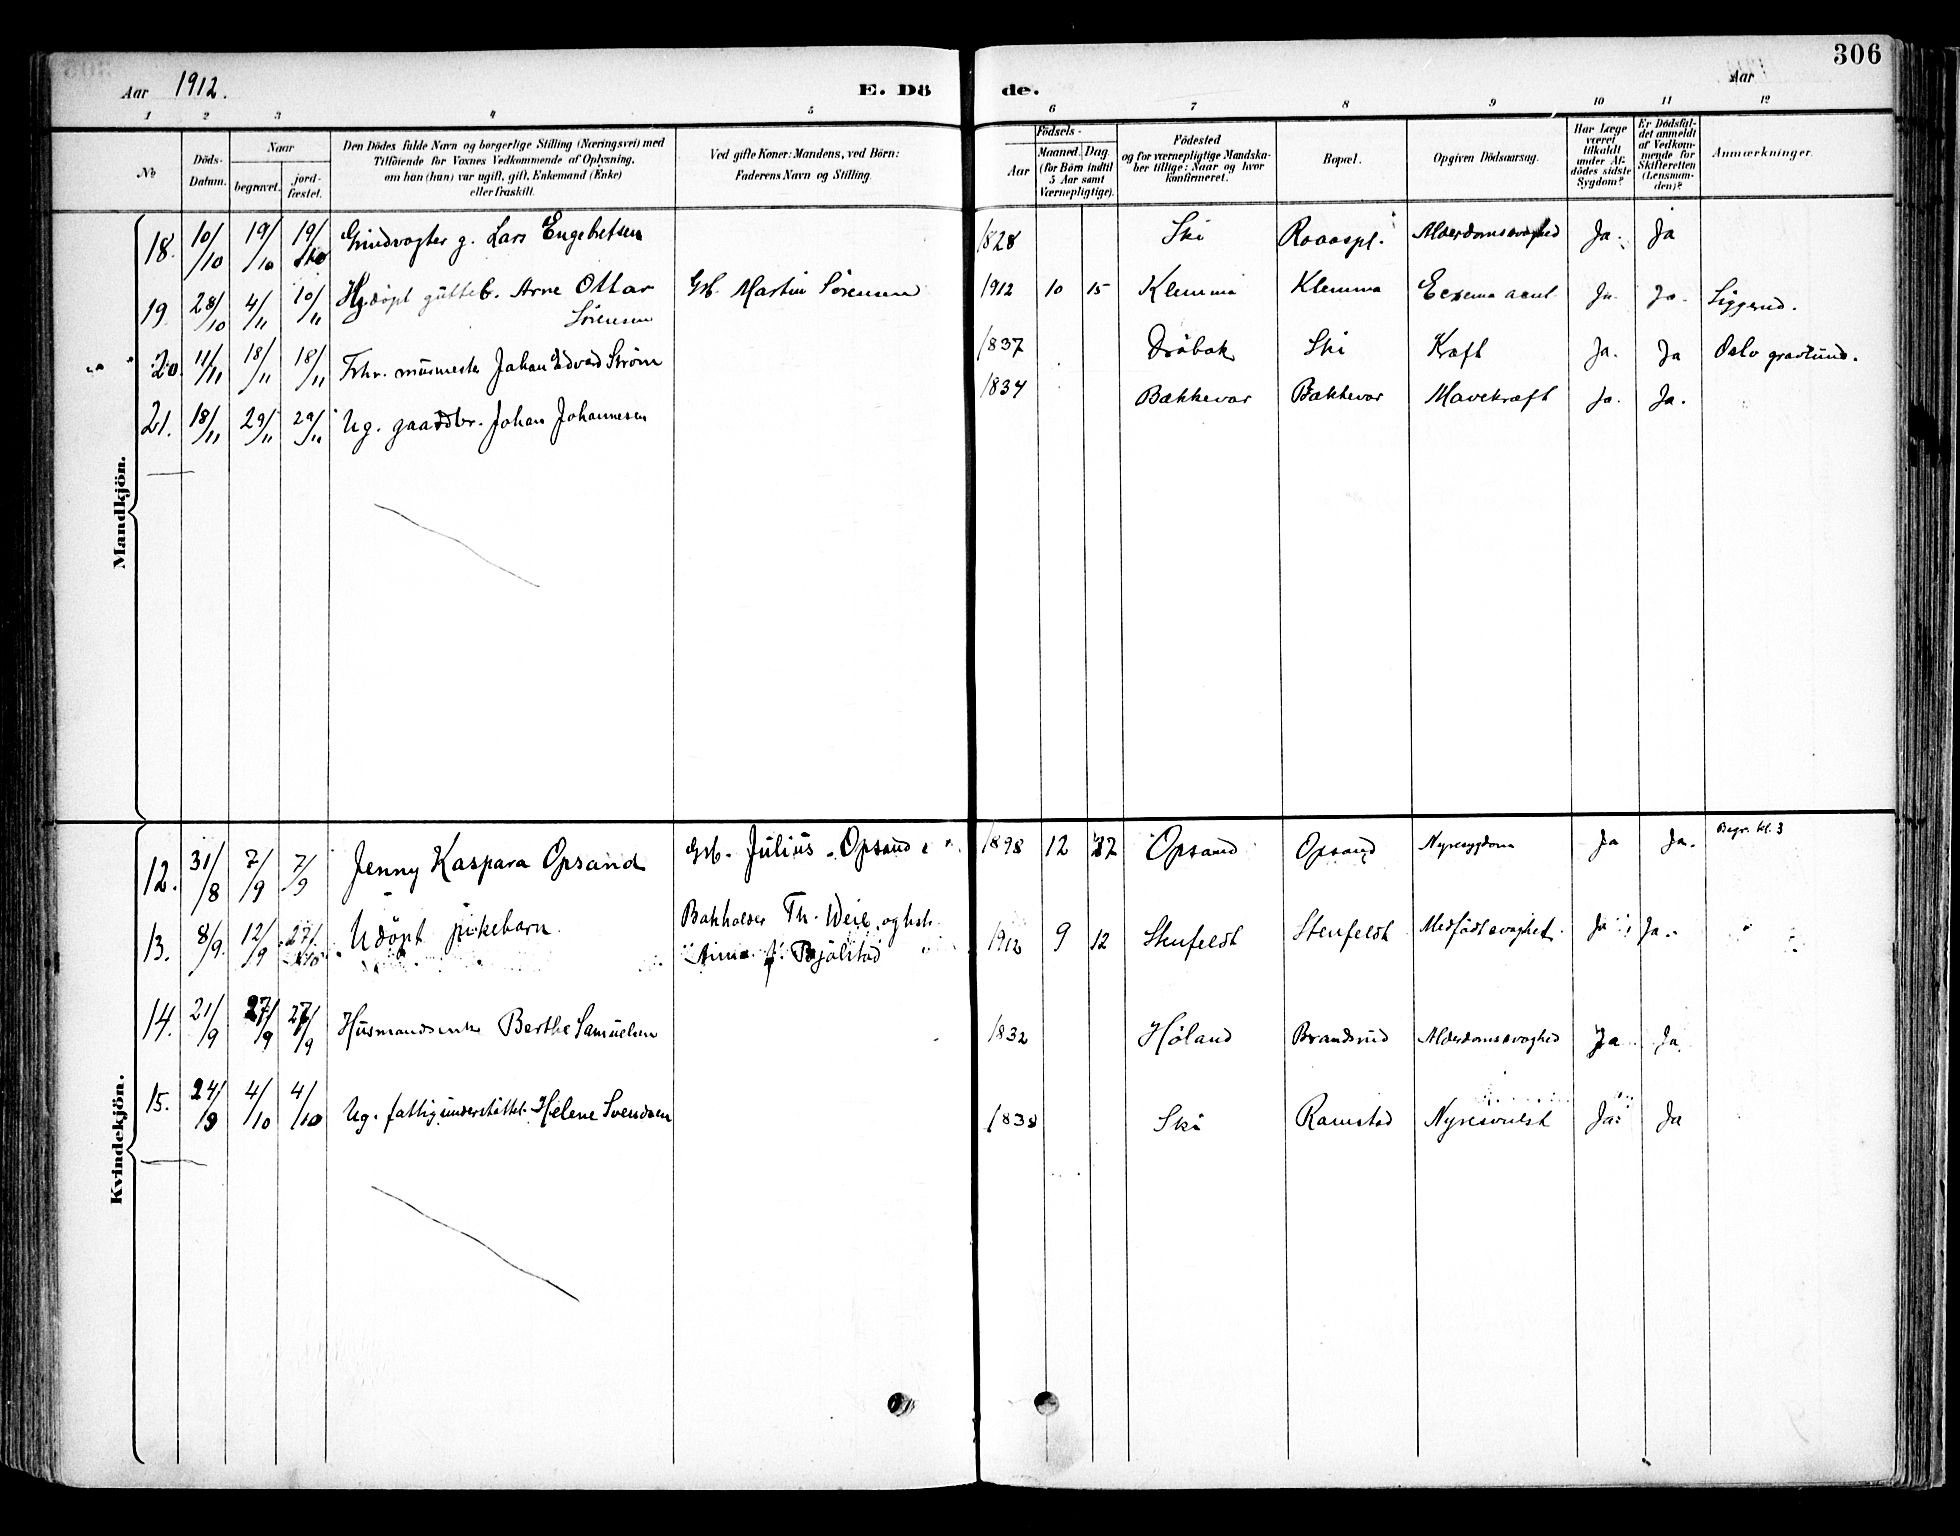 306
Aar 1912.
E. Dö
de.
Aar
1 2 3 4 5 6 7 8 9 10 11 12
No
Döds-Datum.
Naar
begravet.
jordfæstet.
Den Dödes fulde Navn og borgerlige Stilling (Næringsvei) med
Tilföiende for Voxnes Vedkommende af Oplysning,
om han (hun) var ugift, gift, Enkemand (Enke)
eller fraskilt.
Ved gifte Koner: Mandens, ved Börn:
Faderens Navn og Stilling.
Födsels-
Aar
Maaned. Dag
(for Börn indtil
5 Aar samt
Værnepligtige).
Födested
og for værnepligtige Mandska-
ber tillige: Naar og hvor
konfirmeret.
Bopæl.
Opgiven Dödsaarsag.
Har Læge
været
tilkaldt
under Af-
dödes sidste
Sygdom?
Er Dödsfal-
det anmeldt
af Vedkom-
mende for
Skifteretten
(Lensman-
den)?
Anmærkninger.
Mandkjön.
18. 10/10 19/10 19/10 Grindvogter g. Lars Engebretsen 1828 Ski Roaaspl. Alderdomssvaghed Ja. Ja
19. 28/10 4/11 10/11 Hjdöpt gutteb. Arne Ottar Gsb. Martin Sörensen 1912 10 15 Klemma Klemma Eczema acut. Ja. Ja. Siggerud.
Sörensen
20. 11/11 18/11 18/11 Fhv. murmester Johan Edvard Strøm 1837 Dröbak Ski Kræft Ja. Ja Oslo gravlund.
21. 18/11 29/11 29/11 Ug. gaardbr. Johan Johannesen 1834 Bakkevar Bakkevar Mavekræft Ja. Ja.
Kvindekjön.
12. 31/8 7/9 7/9 Jenny Kaspara Opsand Gsb. Julius Opsand 1898 12 Opsand Opsand Nyresygdom Ja Ja. Begr. kl. 3
13. 8/9 12/9 27/10 Udöpt pikebarn Bokholder Th. Weie og hst. 1912 9 12 Stenfeldt Stenfeldt Medfödt svaghet. Ja Ja.
Anna f. Bjölstad
14. 21/9 27/9 27/9 Husmandsenke Berthe Samuelsen 1832 Høland Brandsrud Alderdomssvaghed Ja Ja
15. 24/9 4/10 4/10 Ug. fattigunderstöttet Helene Svendsen 1838 Ski Ramstad Nyresvulst Ja Ja